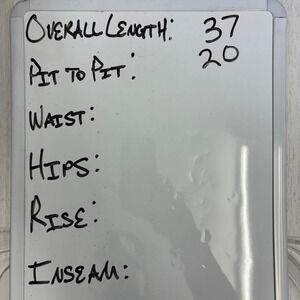 Overall Length: 37
Pit to Pit: 20
Waist:
Hips:
Rise:
Inseam: